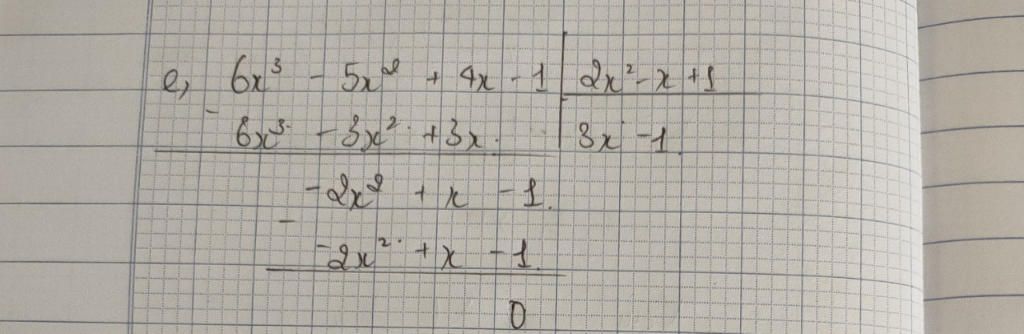 e, 6x³ - 5x² + 4x - 1 | 2x² - x + 1
- 6x³ - 3x² + 3x | 3x - 1
-2x² + x - 1
-
-2x² + x - 1
0